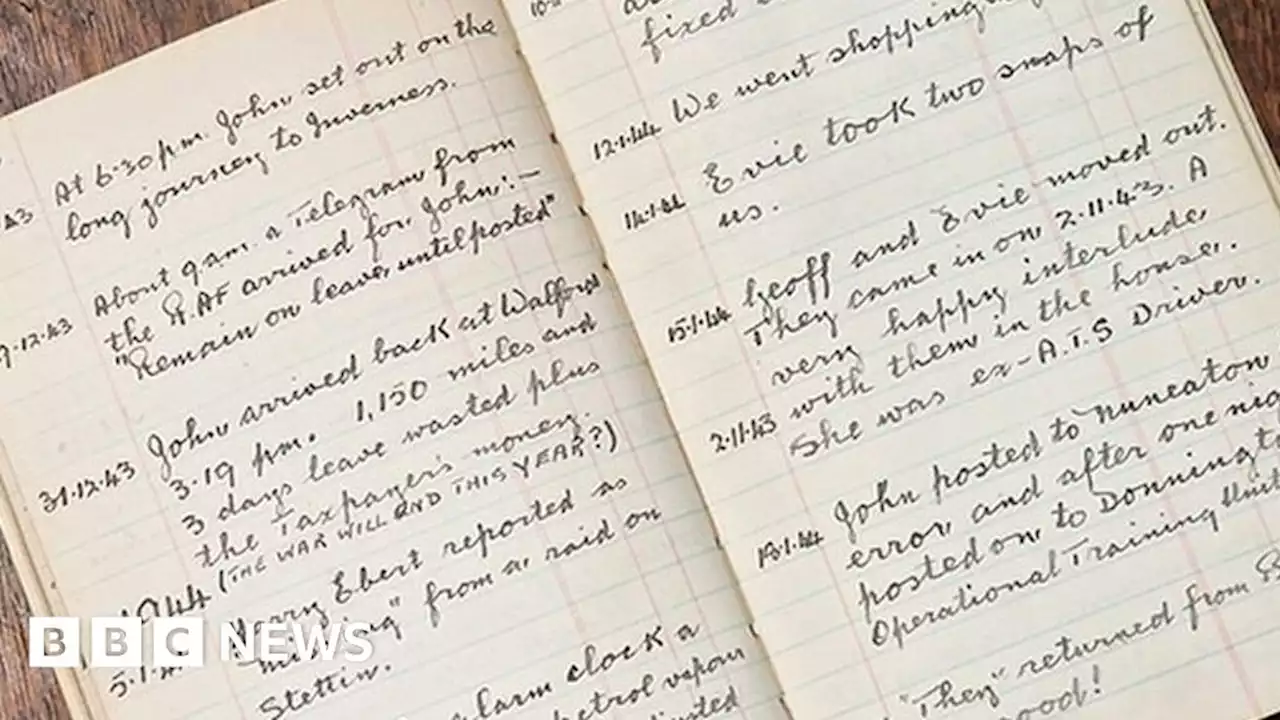 At 6.30 p.m. John set out on the
long journey to Inverness.
About 9 am. a Telegram from
the R.AF arrived for John:-
"Remain on leave, until posted"
31.12.43 John arrived back at Walford
3.19 pm. 1,150 miles and
3 days leave wasted plus
the Taxpayer's money.
1944 (THE WAR WILL END THIS YEAR?)
Harry Ebert reported as
"missing" from a raid on
Stettin.
alarm clock a
petrol vapour
fixed
12.1.44 We went shopping
14.1.44 Evie took two snaps of
us.
15.1.44 Geoff and Evie moved out.
They came in on 2.11.43. A
very happy interlude,
2.11.43 with them in the house.
She was ex-A.T.S Driver.
John posted to Nuneaton
error, and after one
posted on to
Operational Training Unit
"They" returned from
BBC NEWS